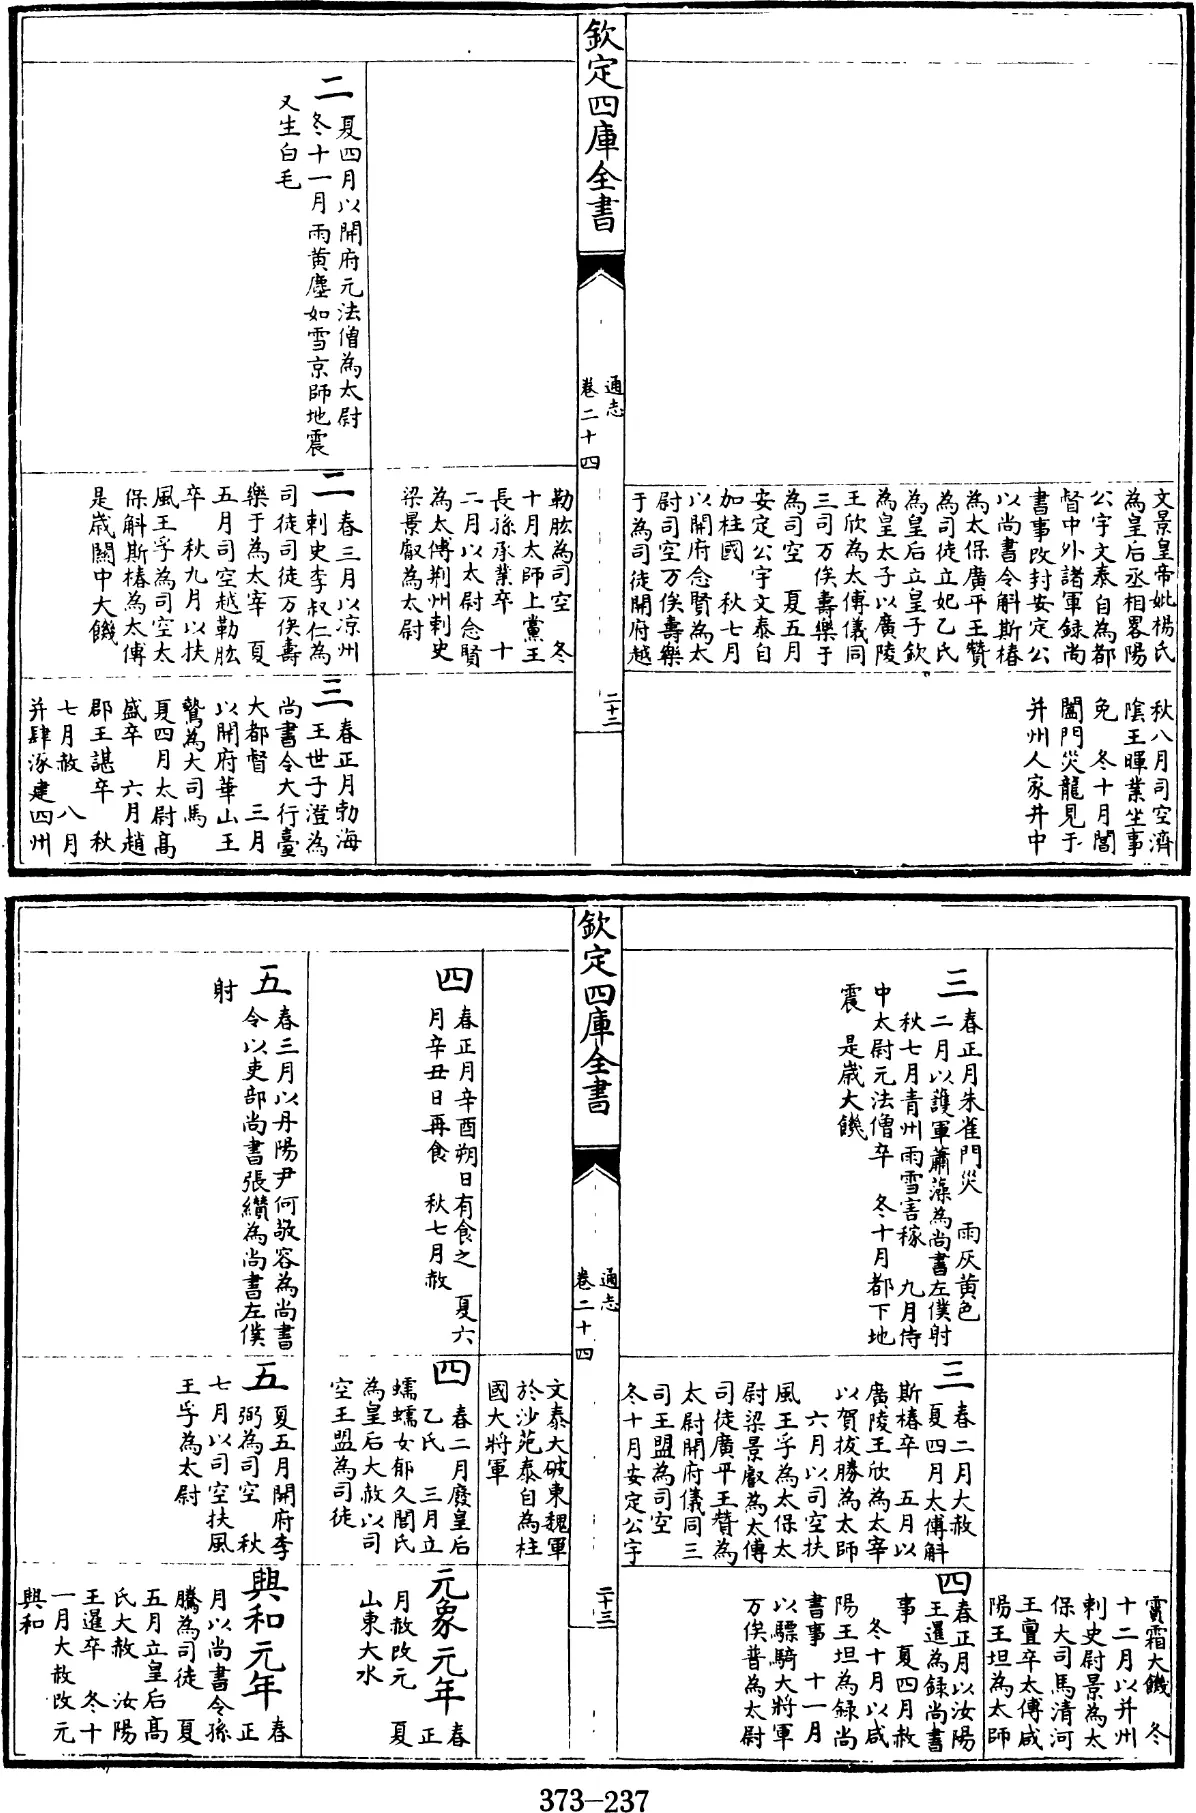 文景皇帝妣楊氏
為皇后丞相畧陽
公宇文泰自為都
督中外諸軍録尚
書事改封安定公
以尚書令斛斯椿
為太保廣平王贊
為司徒立妃乙氏
為皇后立皇子欽
為皇太子以廣陵
王欣為太傅儀同
三司万俟壽樂于
為司空　夏五月
安定公宇文泰自
加柱國　秋七月
以開府念賢為太
尉司空万俟壽樂
于為司徒開府越
秋八月司空濟
陰王暉業坐事
免　冬十月閶
闔門災龍見于
并州人家井中
欽定四庫全書
通志
卷二十四
二十二
勒肱為司空　冬
十月太師上黨王
長孫承業卒　十
二月以太尉念賢
為太傅荆州刺史
梁景叡為太尉
二
夏四月以開府元法僧為太尉
冬十一月雨黄塵如雪京師地震
又生白毛
二
春三月以凉州
刺史李叔仁為
司徒司徒万俟壽
樂于為太宰　夏
五月司空越勒肱
卒　秋九月以扶
風王孚為司空太
保斛斯椿為太傅
是歲關中大饑
三
春正月勃海
王世子澄為
尚書令大行臺
大都督　三月
以開府華山王
鷙為大司馬
夏四月太尉高
盛卒　六月趙
郡王諶卒　秋
七月赦　八月
并肆涿建四州
霣霜大饑　冬
十二月以并州
刺史尉景為太
保大司馬清河
王亶卒太傅咸
陽王坦為太師
三
春正月朱雀門災　雨灰黄色
二月以護軍蕭藻為尚書左僕射
秋七月青州雨雪害稼　九月侍
中太尉元法僧卒　冬十月都下地
震　是歲大饑
三
春二月大赦
夏四月太傅斛
斯椿卒　五月以
廣陵王欣為太宰
以賀拔勝為太師
六月以司空扶
風王孚為太保太
尉梁景叡為太傅
司徒廣平王贊為
太尉開府儀同三
司王盟為司空
冬十月安定公宇
四
春正月以汝陽
王暹為録尚書
事　夏四月赦
冬十月以咸
陽王坦為録尚
書事　十一月
以驃騎大將軍
万俟普為太尉
欽定四庫全書
通志
卷二十四
二十三
文泰大破東魏軍
於沙苑泰自為柱
國大將軍
四
春正月辛酉朔日有食之　夏六
月辛丑日再食　秋七月赦
四
春二月廢皇后
乙氏　三月立
蠕蠕女郁久閭氏
為皇后大赦以司
空王盟為司徒
元象元年
春正
月赦改元　夏
山東大水
五
春三月以丹陽尹何敬容為尚書
令以吏部尚書張纘為尚書左僕
射
五
夏五月開府李
弼為司空　秋
七月以司空扶風
王孚為太尉
興和元年
春正
月以尚書令孫
騰為司徒　夏
五月立皇后高
氏大赦　汝陽
王暹卒　冬十
一月大赦改元
興和
373-237